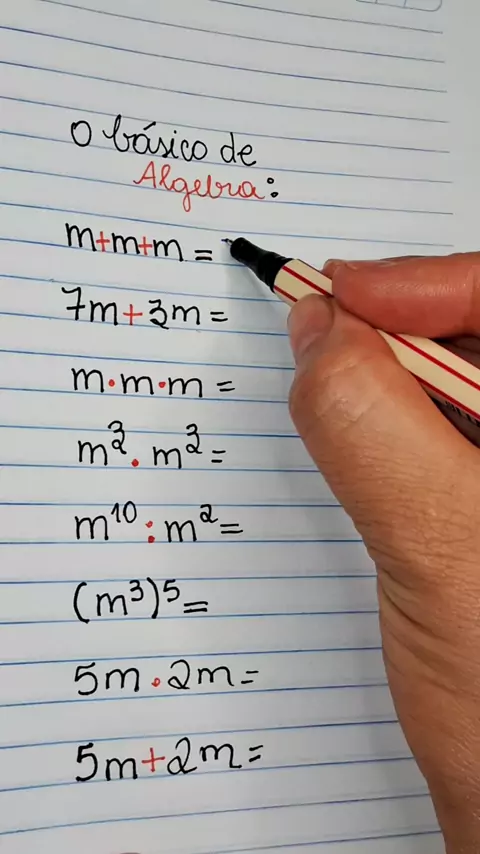 O básico de
Algebra:
m+m+m=
7m+3m=
m·m·m=
m³·m³=
m¹⁰:m²=
(m³)⁵=
5m·2m=
5m+2m=